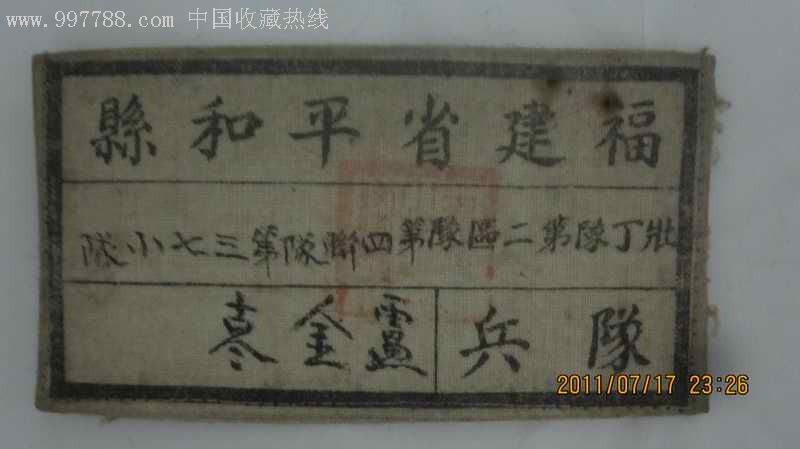 www.997788.com 中国收藏热线
福建省平和縣
壯丁隊第二區隊第四聯隊第三七小隊
隊兵 盧金
2011/07/17 23:26